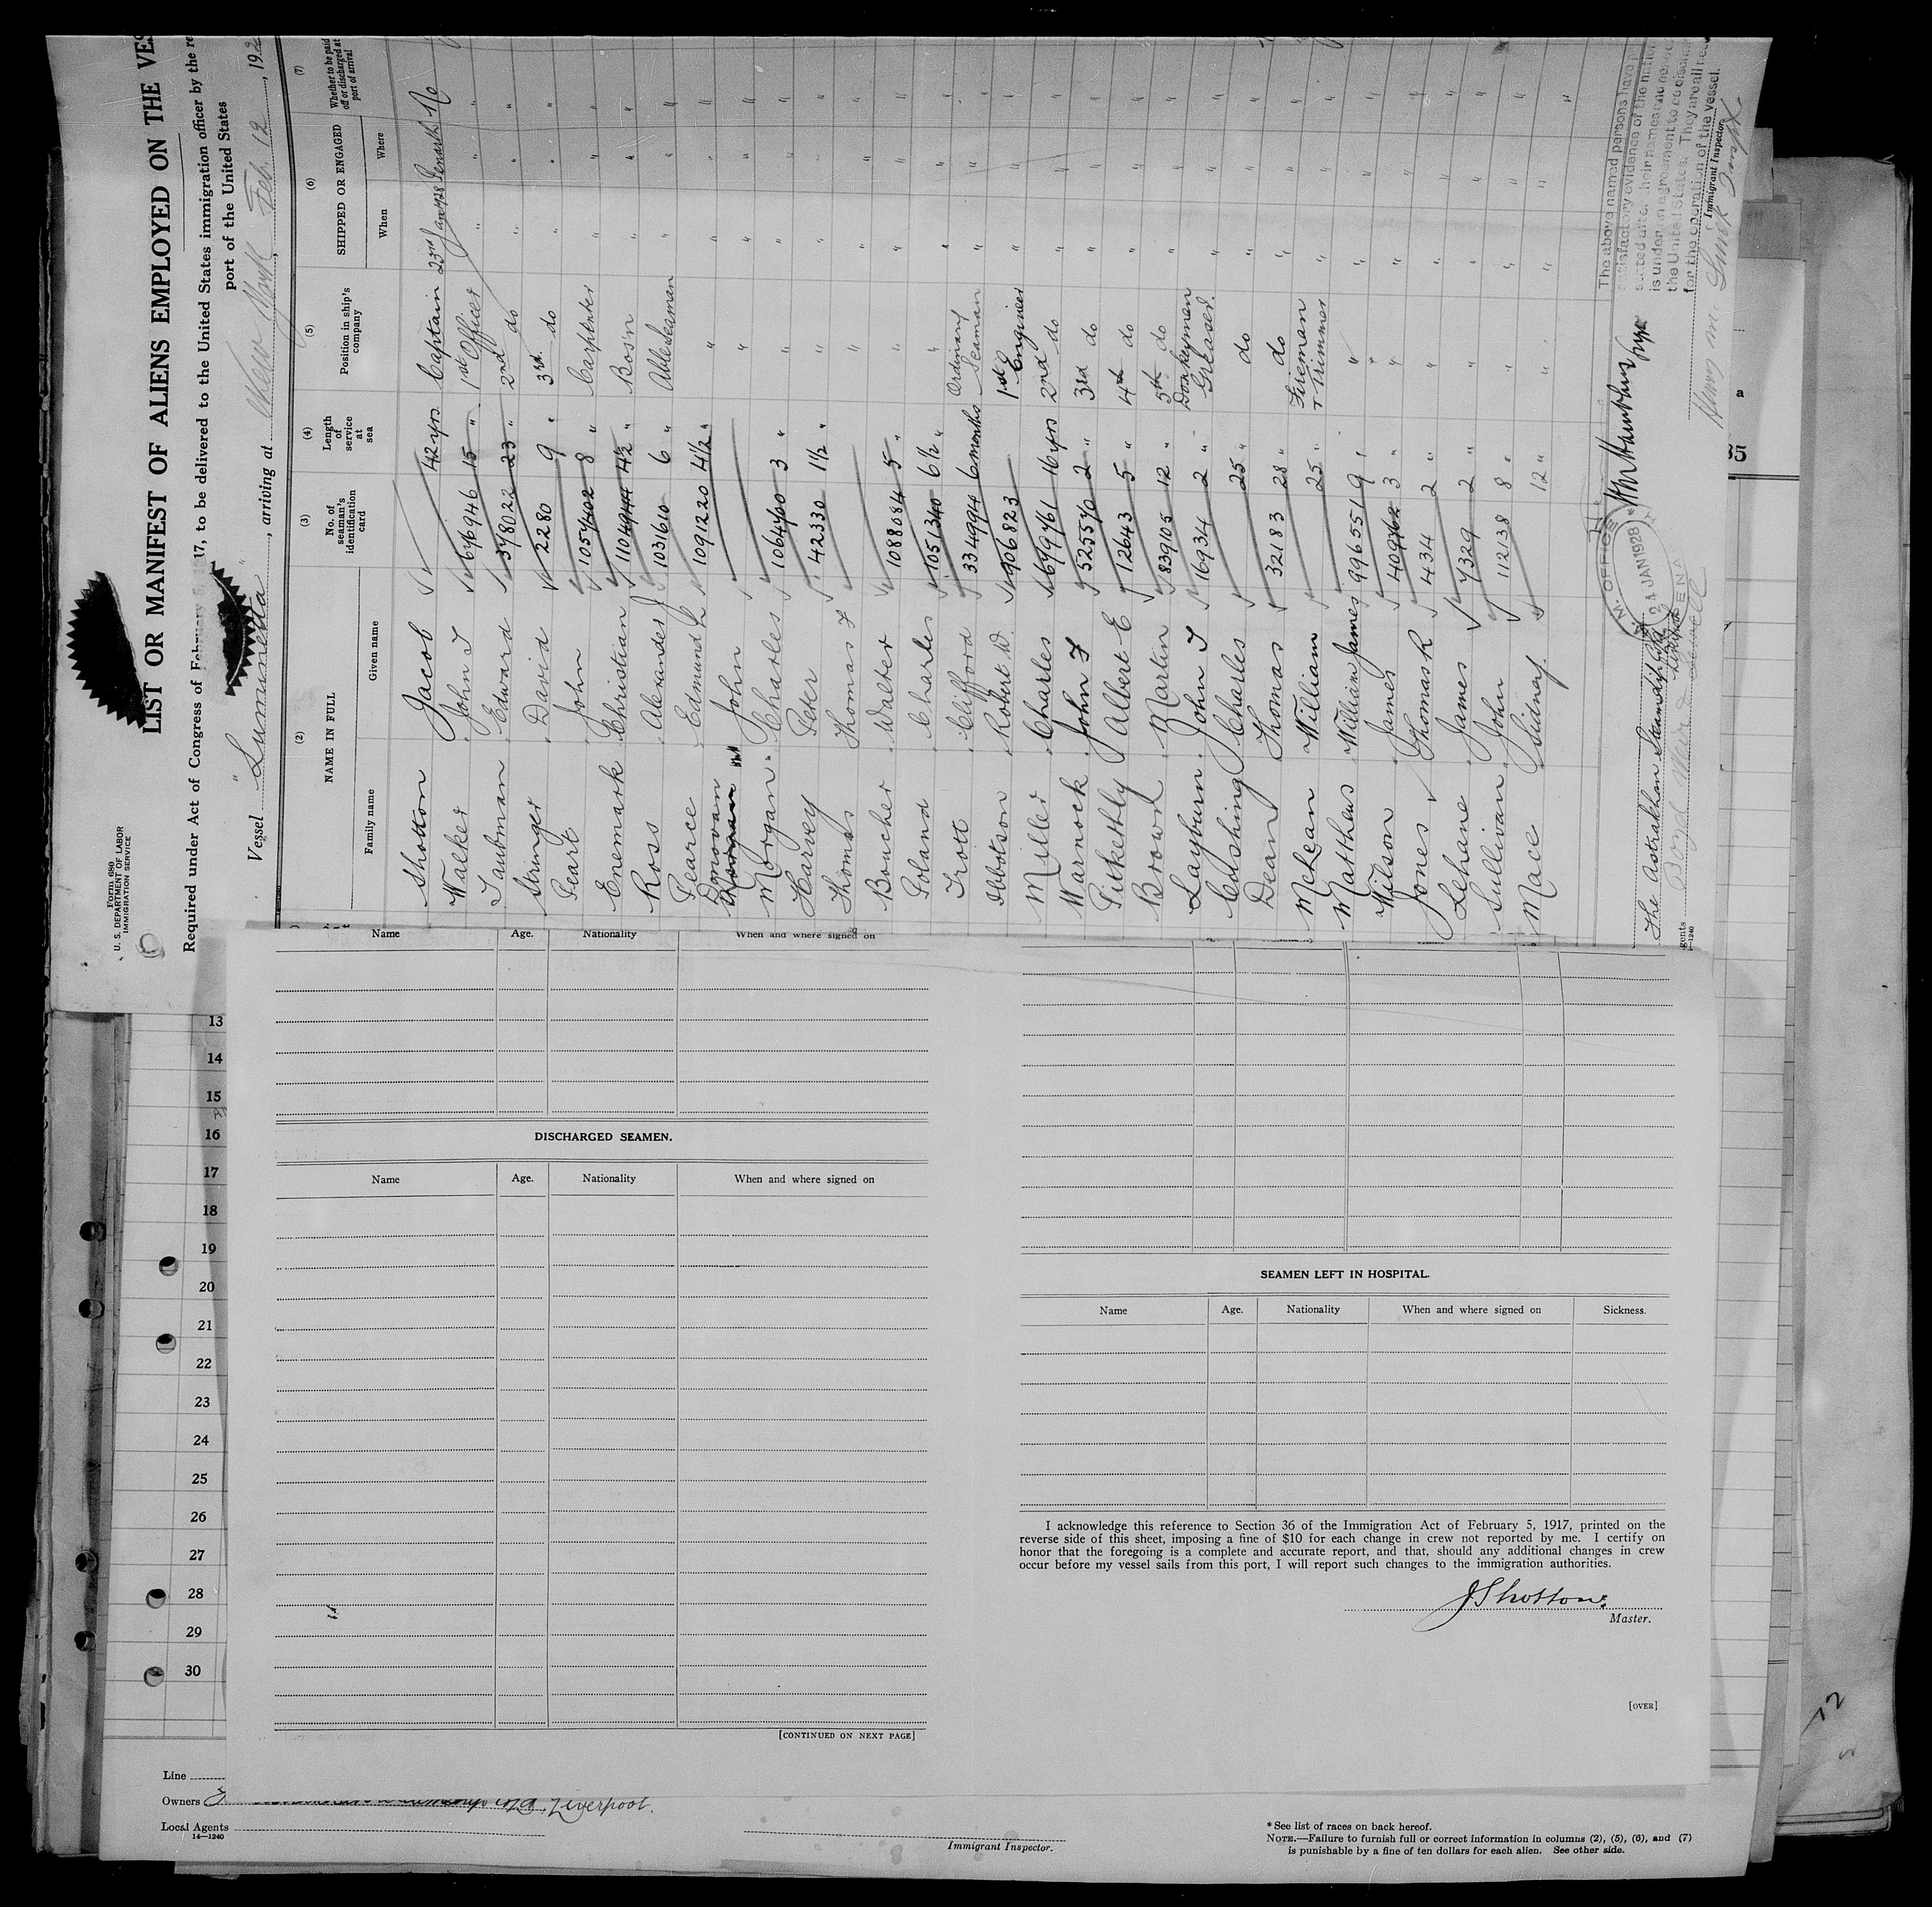 Form 680
U. S. DEPARTMENT OF LABOR
IMMIGRATION SERVICE
LIST OR MANIFEST OF ALIENS EMPLOYED ON THE VES
Required under Act of Congress of February 5, 1917, to be delivered to the United States immigration officer by the re
port of the United States
Vessel "Luminetta", arriving at New York, Feb. 12, 192
(2) (3) (4) (5) (6) (7)
NAME IN FULL No. of seaman's identification card Length of service at sea Position in ship's company SHIPPED OR ENGAGED Whether to be paid off or discharged at port of arrival
Family name Given name When Where
Shotton Jacob 42 yrs Captain 23rd Jan 1928 Penarth No
Walker John T 676946 15 " 1st Officer " " "
Taubman Edward 378022 23 " 2nd do " " "
Stringer David 2280 9 " 3rd do " " "
Peart John 1057402 8 " Carpenter " " "
Enemark Christian 1104944 4½ " Bosn " " "
Ross Alexander J 1031610 6 " Able Seaman " " "
Pearce Edmund L 1091220 4½ " " " " "
Donovan John " " " "
Morgan Charles 1064770 3 " " " " "
Harvey Peter 42330 1½ " " " " "
Thomas Thomas F " " " "
Boucher Walter 1088084 5 " " " " "
Poland Charles 1051340 6½ " " " " "
Trott Clifford 334994 6 months Ordinary Seaman " " "
Ibbotson Robert W. 906823 1st Engineer " " "
Miller Charles 699761 16 yrs 2nd do " " "
Warnock John F 525570 2 " 3rd do " " "
Pitkethly Albert E 12643 5 " 4th do " " "
Brown Martin 839105 12 " 5th do " " "
Layburn John T 16934 2 " Donkeyman Greaser. " " "
Cushing Charles 25 " do " " "
Dean Thomas 32183 28 " do " " "
McLean William 25 " Fireman + Trimmer " " "
Matthews William James 996551 9 " " " " "
Wilson James 409762 3 " " " " "
Jones Thomas R 4434 2 " " " " "
Lehane James 7329 2 " " " " "
Sullivan John 112138 8 " " " " "
Mace Sidney 12 " " " " "
The Astrakhan Steamship Co
24 JAN 1928
The above named persons have
satisfactory evidence of the nati
stated after their names
is under an agreement to be discha
the United States. They are all nec
for the operation of the vessel.
Immigrant Inspector.
gents
14—1240
35
Name Age. Nationality When and where signed on
13
14
15
16
17
18
19
20
21
22
23
24
25
26
27
28
29
30
DISCHARGED SEAMEN.
Name Age. Nationality When and where signed on
[CONTINUED ON NEXT PAGE]
SEAMEN LEFT IN HOSPITAL.
Name Age. Nationality When and where signed on Sickness.
I acknowledge this reference to Section 36 of the Immigration Act of February 5, 1917, printed on the
reverse side of this sheet, imposing a fine of $10 for each change in crew not reported by me. I certify on
honor that the foregoing is a complete and accurate report, and that, should any additional changes in crew
occur before my vessel sails from this port, I will report such changes to the immigration authorities.
J Shotton
Master.
[OVER]
12
Line
Owners Liverpool.
Local Agents
14—1240
Immigrant Inspector.
* See list of races on back hereof.
NOTE.—Failure to furnish full or correct information in columns (2), (5), (6), and (7)
is punishable by a fine of ten dollars for each alien. See other side.